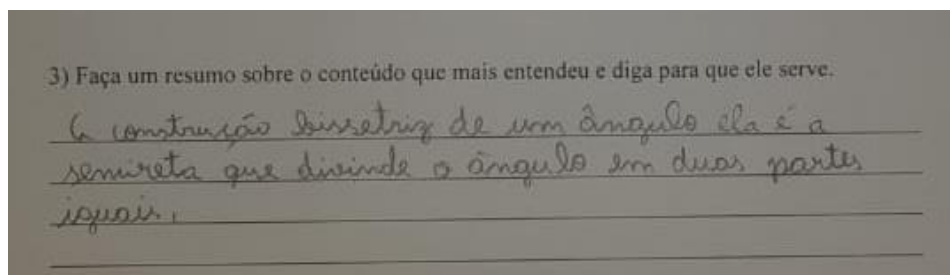 3) Faça um resumo sobre o conteúdo que mais entendeu e diga para que ele serve.
A construção bissetriz de um ângulo ela é a
semireta que divinde o ângulo em duas partes
iguais.